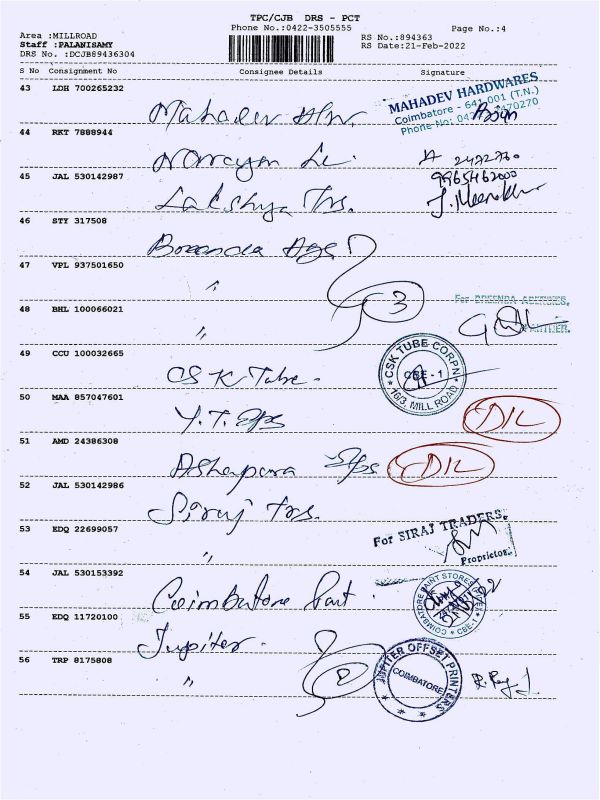 TPC/CJB DRS - PCT
Phone No.:0422-3505555
Page No.:4
Area :MILLROAD
Staff :PALANISAMY
DRS No. :DCJB89436304
RS No.:894363
RS Date:21-Feb-2022
S No Consignment No Consignee Details Signature
43 LDH 700265232
Mahadev
MAHADEV HARDWARES
Coimbatore - 641 001 (T.N.)
44 RKT 7888944
Narayan
2472730
9965462000
45 JAL 530142987
Lakshya Trs.
46 STY 317508
Breenda Ags
47 VPL 937501650
"
3
For BREENDA AGENCIES,
PARTNER.
48 BHL 100066021
"
49 CCU 100032665
CSK Tube.
CSK TUBE CORPN
CBE - 1
16/3, MILL ROAD
50 MAA 857047601
Y.T. Eps
CDIL
51 AMD 24386308
Ashapura
CDIL
52 JAL 530142986
Siraj Trs.
53 EDQ 22699057
"
For SIRAJ TRADERS,
Proprietor
54 JAL 530153392
Coimbatore Paint
COIMBATORE PAINT STORES
CBE-1
55 EDQ 11720100
Jupiter
56 TRP 8175808
"
2
JUPITER OFFSET PRINTERS
COIMBATORE